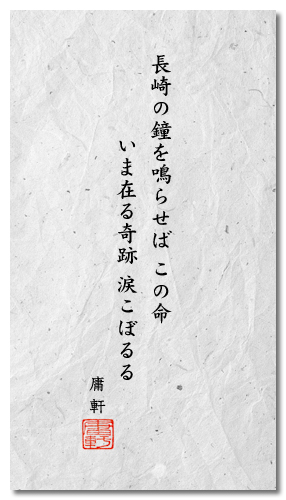 長崎の鐘を鳴らせば この命
いま在る奇跡 涙こぼるる
庸軒